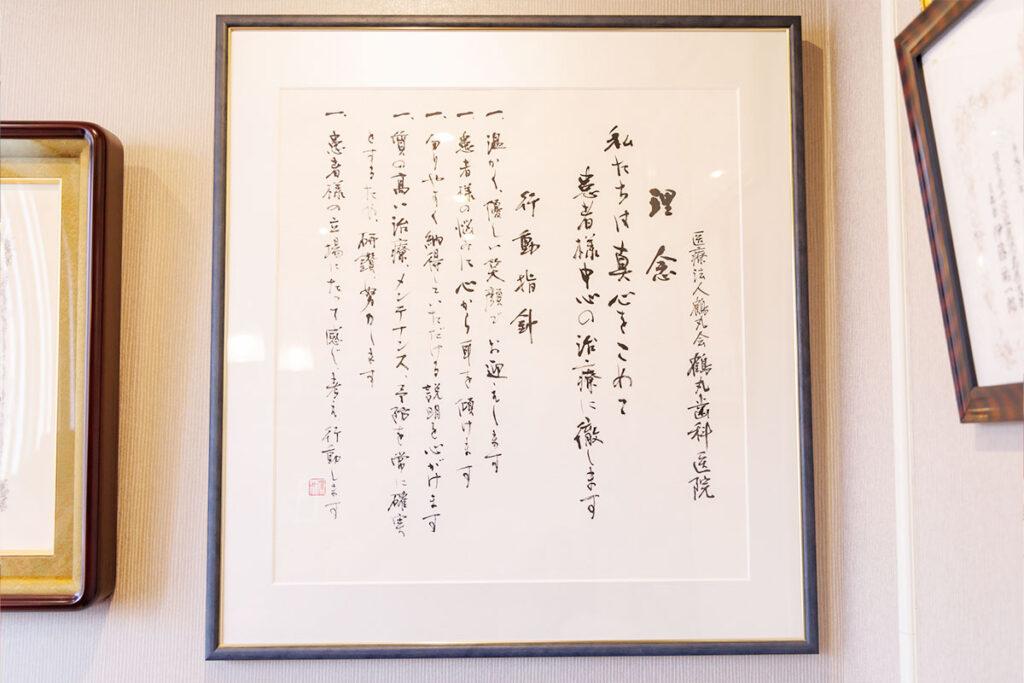 医療法人鶴丸会 鶴丸歯科医院
理念
私たちは真心をこめて
患者様中心の治療に徹します
行動指針
一、温かく、優しい笑顔でお迎えします
一、患者様の悩みに心から耳を傾けます
一、分りやすく納得していただける説明を心がけます
一、質の高い治療、メンテナンス、予防を常に確実
とするため、研鑽努力します
一、患者様の立場にたって感じ、考え、行動します